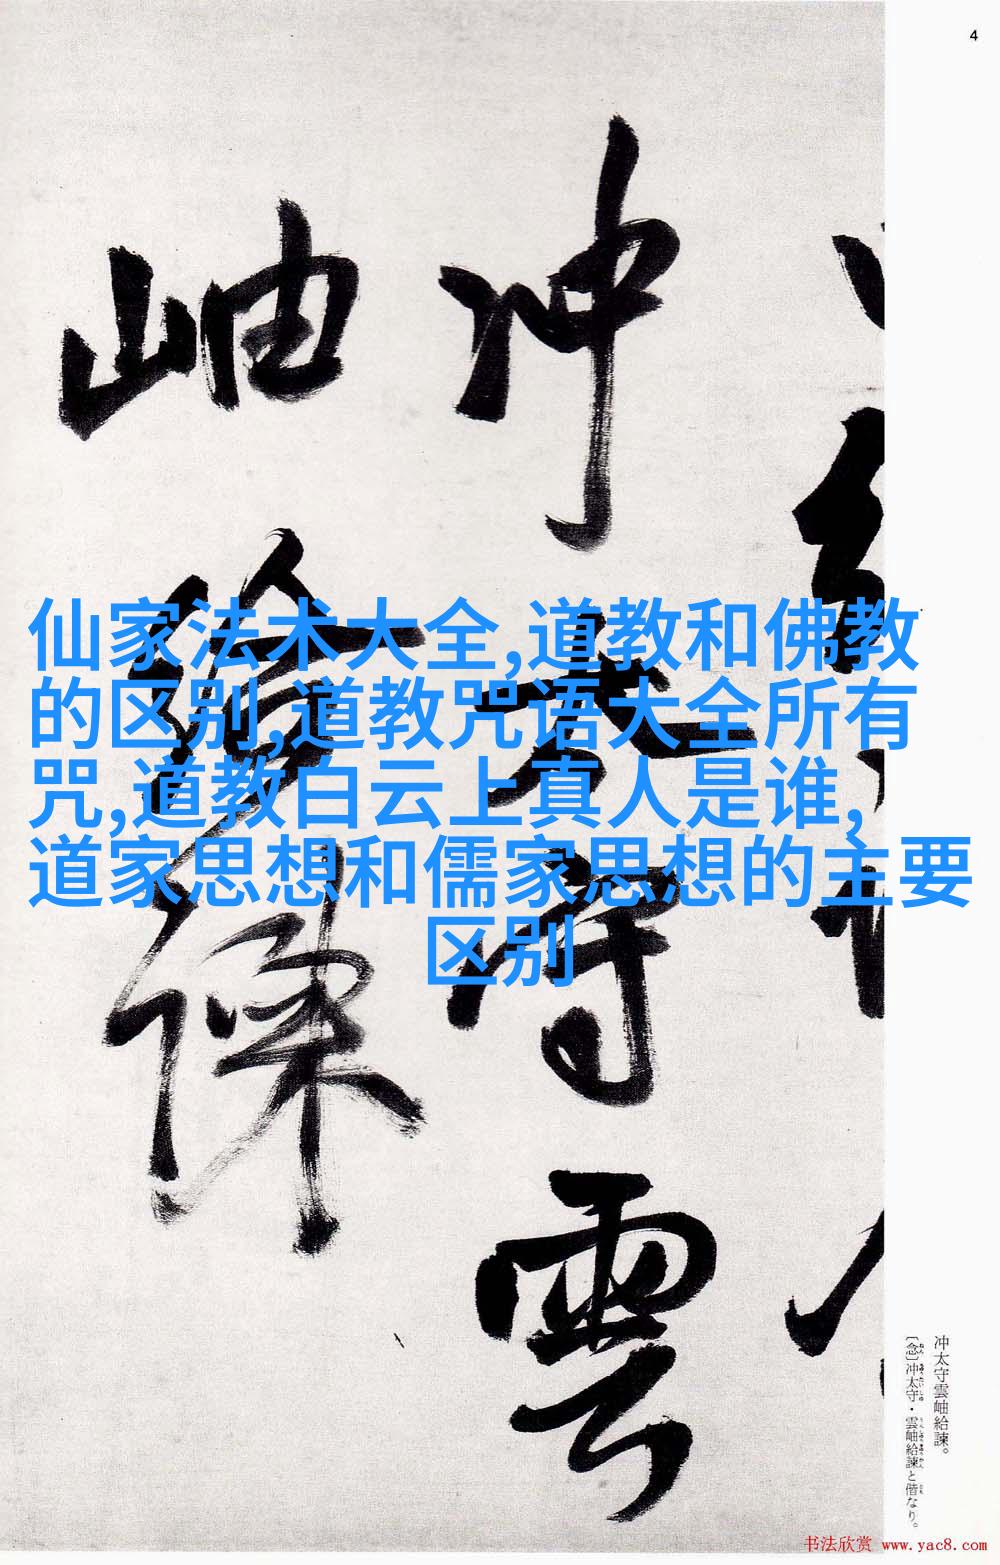 4
仙家法术大全,道教和佛教
的区别,道教咒语大全所有
咒,道教白云上真人是谁,
道家思想和儒家思想的主要
区别
冲太守雲
岫給諫
冲太守雲岫給諫。
〔念〕冲太守・雲岫給諫と偕なり。
书法欣赏 www.yac8.com